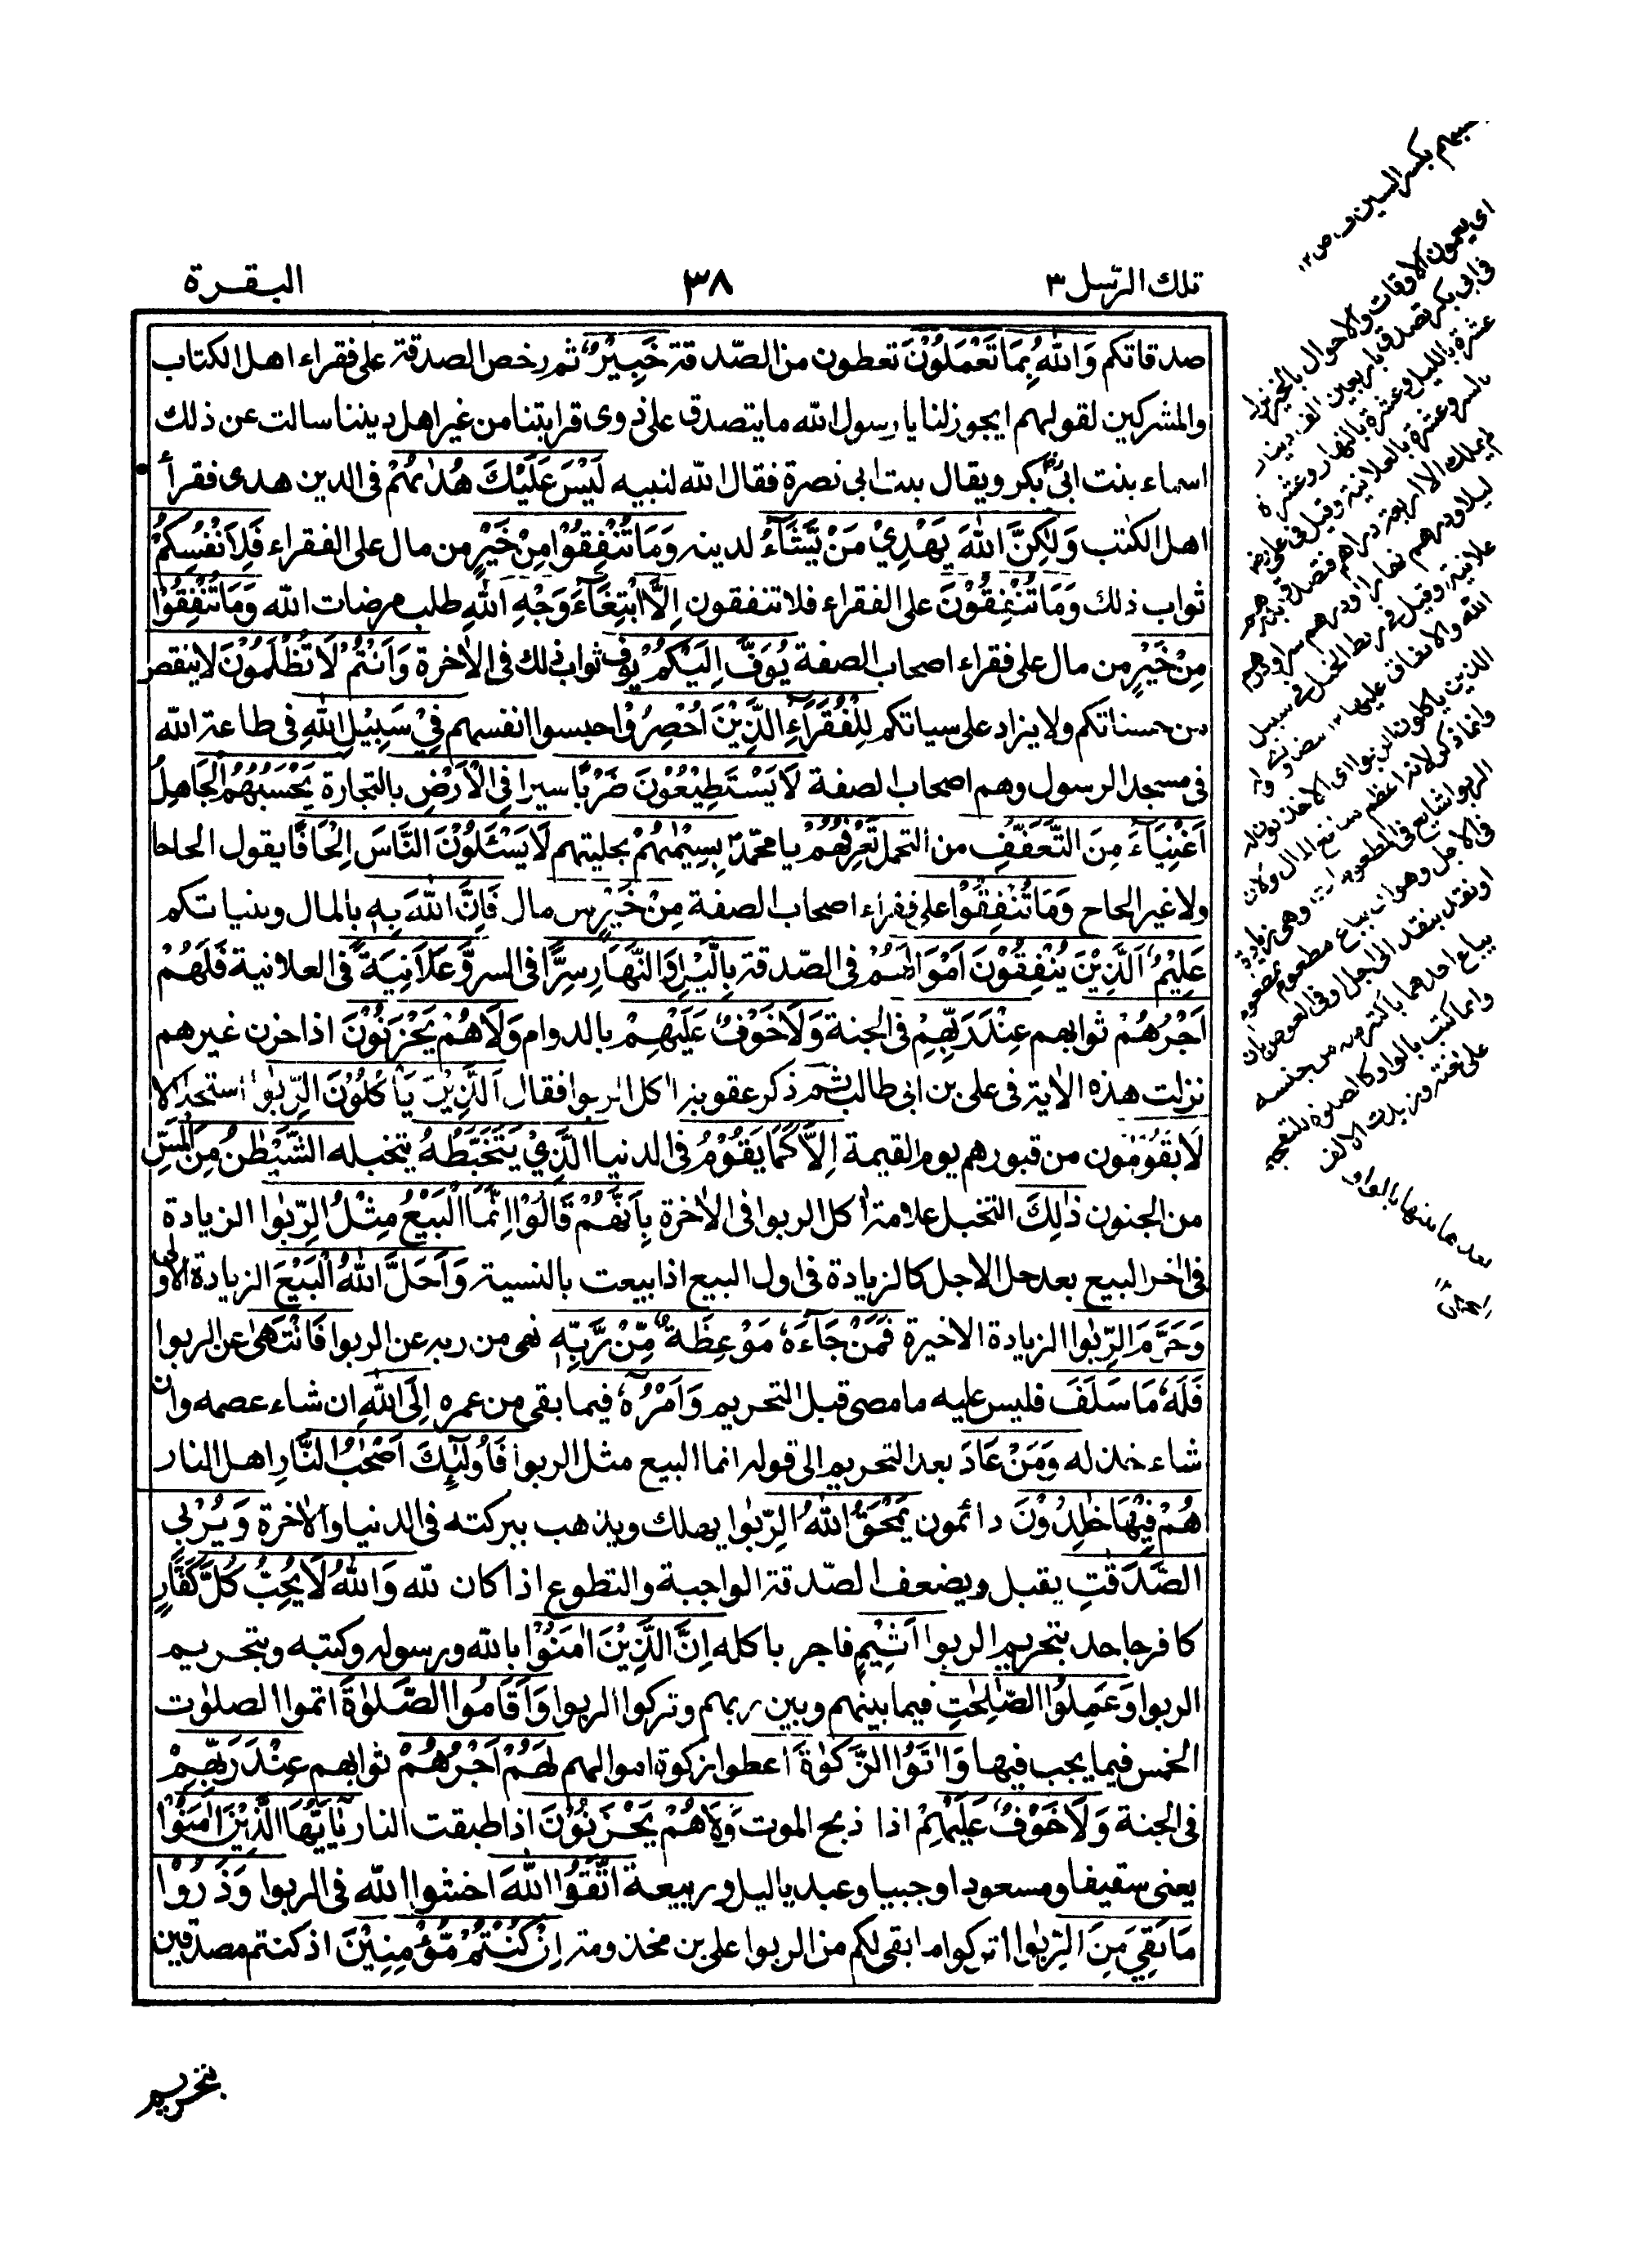 تلك الرّسل ٣
٣٨
البقرة
صدقاتكم وَاللّٰهُ بِمَا تَعْمَلُوْنَ تعطون من الصّدقة خَبِيْرٌ ثم رخص الصدقة على فقراء اهل الكتاب
والمشركين لقولهم ايجوز لنا يا رسول الله ما يتصدق على ذوى قرابتنا من غير اهل ديننا سالت عن ذلك
اسماء بنت ابى بكر ويقال بنت ابى نصرة فقال الله لنبيه لَيْسَ عَلَيْكَ هُدٰىهُمْ فى الدين هدى فقرأ
اهل الكتٰب وَلٰكِنَّ اللّٰهَ يَهْدِيْ مَنْ يَّشَآءُ لدينه وَمَا تُنْفِقُوْا مِنْ خَيْرٍ من مال على الفقراء فَلِاَنْفُسِكُمْ
ثواب ذلك وَمَا تُنْفِقُوْنَ على الفقراء فلا تنفقون اِلَّا ابْتِغَآءَ وَجْهِ اللّٰهِ طلب مرضات الله وَمَا تُنْفِقُوْا
مِنْ خَيْرٍ من مال على فقراء اصحاب الصفة يُوَفَّ اِلَيْكُمْ يوف ثواب ذلك فى الاٰخرة وَاَنْتُمْ لَا تُظْلَمُوْنَ لا ينقص
من حسناتكم ولا يزاد على سياتكم لِلْفُقَرَآءِ الَّذِيْنَ اُحْصِرُوْا حبسوا انفسهم فِيْ سَبِيْلِ اللّٰهِ فى طاعة الله
فى مسجد الرسول وهم اصحاب الصفة لَا يَسْتَطِيْعُوْنَ ضَرْبًا سيرا فِى الْاَرْضِ بالتجارة يَحْسَبُهُمُ الْجَاهِلُ
اَغْنِيَآءَ مِنَ التَّعَفُّفِ من التحمل تَعْرِفُهُمْ يا محمّد بِسِيْمٰىهُمْ بحليتهم لَا يَسْـَٔلُوْنَ النَّاسَ اِلْحَافًا يقول الحاحا
ولا غير الحاح وَمَا تُنْفِقُوْا على فقراء اصحاب الصفة مِنْ خَيْرٍ من مال فَاِنَّ اللّٰهَ بِهٖ بالمال وبنياتكم
عَلِيْمٌ اَلَّذِيْنَ يُنْفِقُوْنَ اَمْوَالَهُمْ فى الصّدقة بِالَّيْلِ وَالنَّهَارِ سِرًّا فى السر وَّعَلَانِيَةً فى العلانية فَلَهُمْ
اَجْرُهُمْ ثوابهم عِنْدَ رَبِّهِمْ فى الجنة وَلَا خَوْفٌ عَلَيْهِمْ بالدوام وَلَا هُمْ يَحْزَنُوْنَ اذا حزن غيرهم
نزلت هذه الاٰية فى على بن ابى طالب ثم ذكر عقوبة اكل الربوا فقال اَلَّذِيْنَ يَاْكُلُوْنَ الرِّبٰوا استحلالا
لَا يَقُوْمُوْنَ من قبورهم يوم القيمة اِلَّا كَمَا يَقُوْمُ فى الدنيا الَّذِيْ يَتَخَبَّطُهُ يتخبله الشَّيْطٰنُ مِنَ الْمَسِّ
من الجنون ذٰلِكَ التخبل علامة اكل الربوا فى الاٰخرة بِاَنَّهُمْ قَالُوْا اِنَّمَا الْبَيْعُ مِثْلُ الرِّبٰوا الزيادة
فى اخر البيع بعد حل الاجل كالزيادة فى اول البيع اذا بيعت بالنسية وَاَحَلَّ اللّٰهُ الْبَيْعَ الزيادة الاولى
وَحَرَّمَ الرِّبٰوا الزيادة الاخيرة فَمَنْ جَآءَهٗ مَوْعِظَةٌ مِّنْ رَّبِّهٖ نهى من ربه عن الربوا فَانْتَهٰى عن الربوا
فَلَهٗ مَا سَلَفَ فليس عليه ما مضى قبل التحريم وَاَمْرُهٗ فيما بقى من عمره اِلَى اللّٰهِ ان شاء عصمه وان
شاء خذله وَمَنْ عَادَ بعد التحريم الى قوله انما البيع مثل الربوا فَاُولٰٓئِكَ اَصْحٰبُ النَّارِ اهل النار
هُمْ فِيْهَا خٰلِدُوْنَ دائمون يَمْحَقُ اللّٰهُ الرِّبٰوا يهلك ويذهب ببركته فى الدنيا والاٰخرة وَيُرْبِى
الصَّدَقٰتِ يقبل ويضعف الصّدقة الواجبة والتطوع اذا كان لله وَاللّٰهُ لَا يُحِبُّ كُلَّ كَفَّارٍ
كافر جاحد بتحريم الربوا اَثِيْمٍ فاجر باكله اِنَّ الَّذِيْنَ اٰمَنُوْا بالله ورسوله وكتبه وبتحريم
الربوا وَعَمِلُوا الصّٰلِحٰتِ فيما بينهم وبين ربهم وتركوا الربوا وَاَقَامُوا الصَّلٰوةَ اتموا الصلوٰت
الخمس فيما يجب فيها وَاٰتَوُا الزَّكٰوةَ اعطوا زكوة اموالهم لَهُمْ اَجْرُهُمْ ثوابهم عِنْدَ رَبِّهِمْ
فى الجنة وَلَا خَوْفٌ عَلَيْهِمْ اذا ذبح الموت وَلَا هُمْ يَحْزَنُوْنَ اذا طبقت النار يٰٓاَيُّهَا الَّذِيْنَ اٰمَنُوْا
يعنى سقيفا ومسعودا وجبيبا وعبد ياليل وربيعة اتَّقُوا اللّٰهَ اخشوا الله فى الربوا وَذَرُوْا
مَا بَقِيَ مِنَ الرِّبٰوا اتركوا ما بقى لكم من الربوا على بن مخذومة اِنْ كُنْتُمْ مُّؤْمِنِيْنَ اذ كنتم مصدقين
بكسر السين
اى يعمون الاوقات والاحوال بالخير نزل
فى ابى بكر تصدق باربعين الف دينار
عشرة بالليل وعشرة بالنهار وعشرة
بالسر وعشرة بالعلانية وقيل فى على رضه
لم يملك الا اربعة دراهم فتصدق بدرهم
ليلا ودرهم نهارا ودرهم سرا ودرهم
علانية وقيل فى ربط الخيل فى سبيل
الله والانفاق عليها
الذين ياكلون الربوا اى الاخذون له
وانما ذكر لانه اعظم منافع المال ولان
الربوا شايع فى المطعومات وهى زيادة
فى الاجل وهو ان يباع مطعوم بمطعوم
او نقد بنقد الى اجل او فى العوض بان
يباع احدهما باكثر منه من جنسه
وانما كتب بالواو كالصلوة للتفخيم
على لغته وزيدت الالف
بعدها بالواو
بتحريم